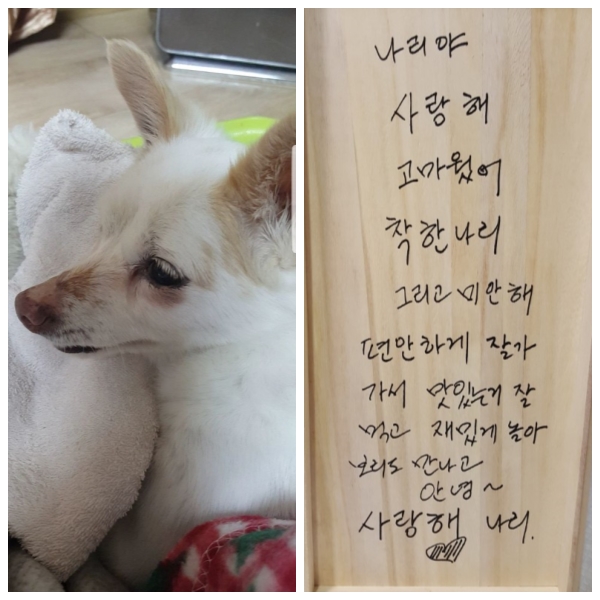 나리야
사랑해
고마웠어
착한나리
그리고 미안해
편안하게 잘가
가서 맛있는거 잘
먹고 재밌게 놀아
보리도 만나고
안녕~
사랑해 나리.